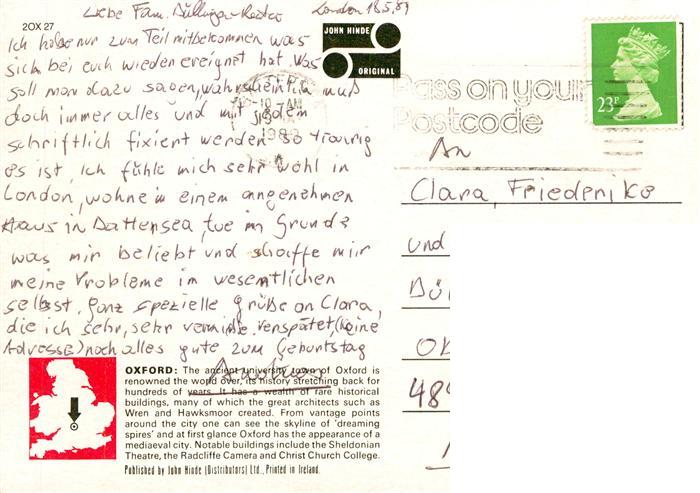 2OX 27
Liebe Fam. London 18.5.89
Ich habe nur zum Teil mitbekommen was
sich bei euch wieder ereignet hat. Was
soll man dazu sagen, wahrscheinlich muß
doch immer alles und mit jedem
schriftlich fixiert werden so traurig
es ist, ich fühle mich sehr wohl in
London, wohne in einem angenehmen
Haus in Battersea, tue im Grunde
was mir beliebt und schaffe mir
meine Probleme im wesentlichen
selbst. Ganz spezielle Grüße an Clara,
die ich sehr, sehr vermisse, verspätet, (keine
Adresse) noch alles gute zum Geburtstag
Andreas
JOHN HINDE
ORIGINAL
10 - AM
Pass on your
Postcode
23P
An
Clara, Friederike
und
OXFORD: The ancient university town of Oxford is
renowned the world over, its history stretching back for
hundreds of years. It has a wealth of rare historical
buildings, many of which the great architects such as
Wren and Hawksmoor created. From vantage points
around the city one can see the skyline of 'dreaming
spires' and at first glance Oxford has the appearance of a
mediaeval city. Notable buildings include the Sheldonian
Theatre, the Radcliffe Camera and Christ Church College.
Published by John Hinde (Distributors) Ltd., Printed in Ireland.